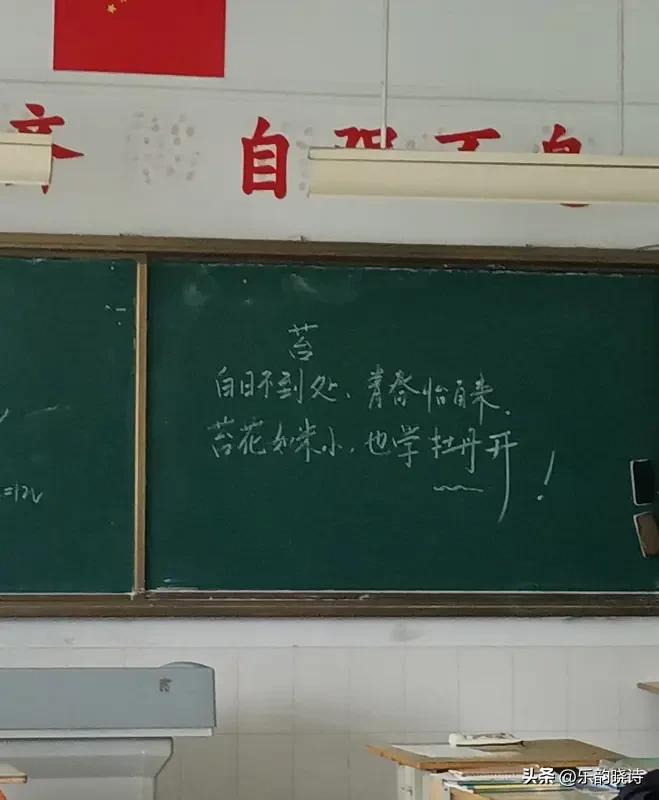 齐 自强不息
苔
白日不到处、青春恰自来.
苔花如米小,也学牡丹开!
=12V
头条 @乐韵晓诗